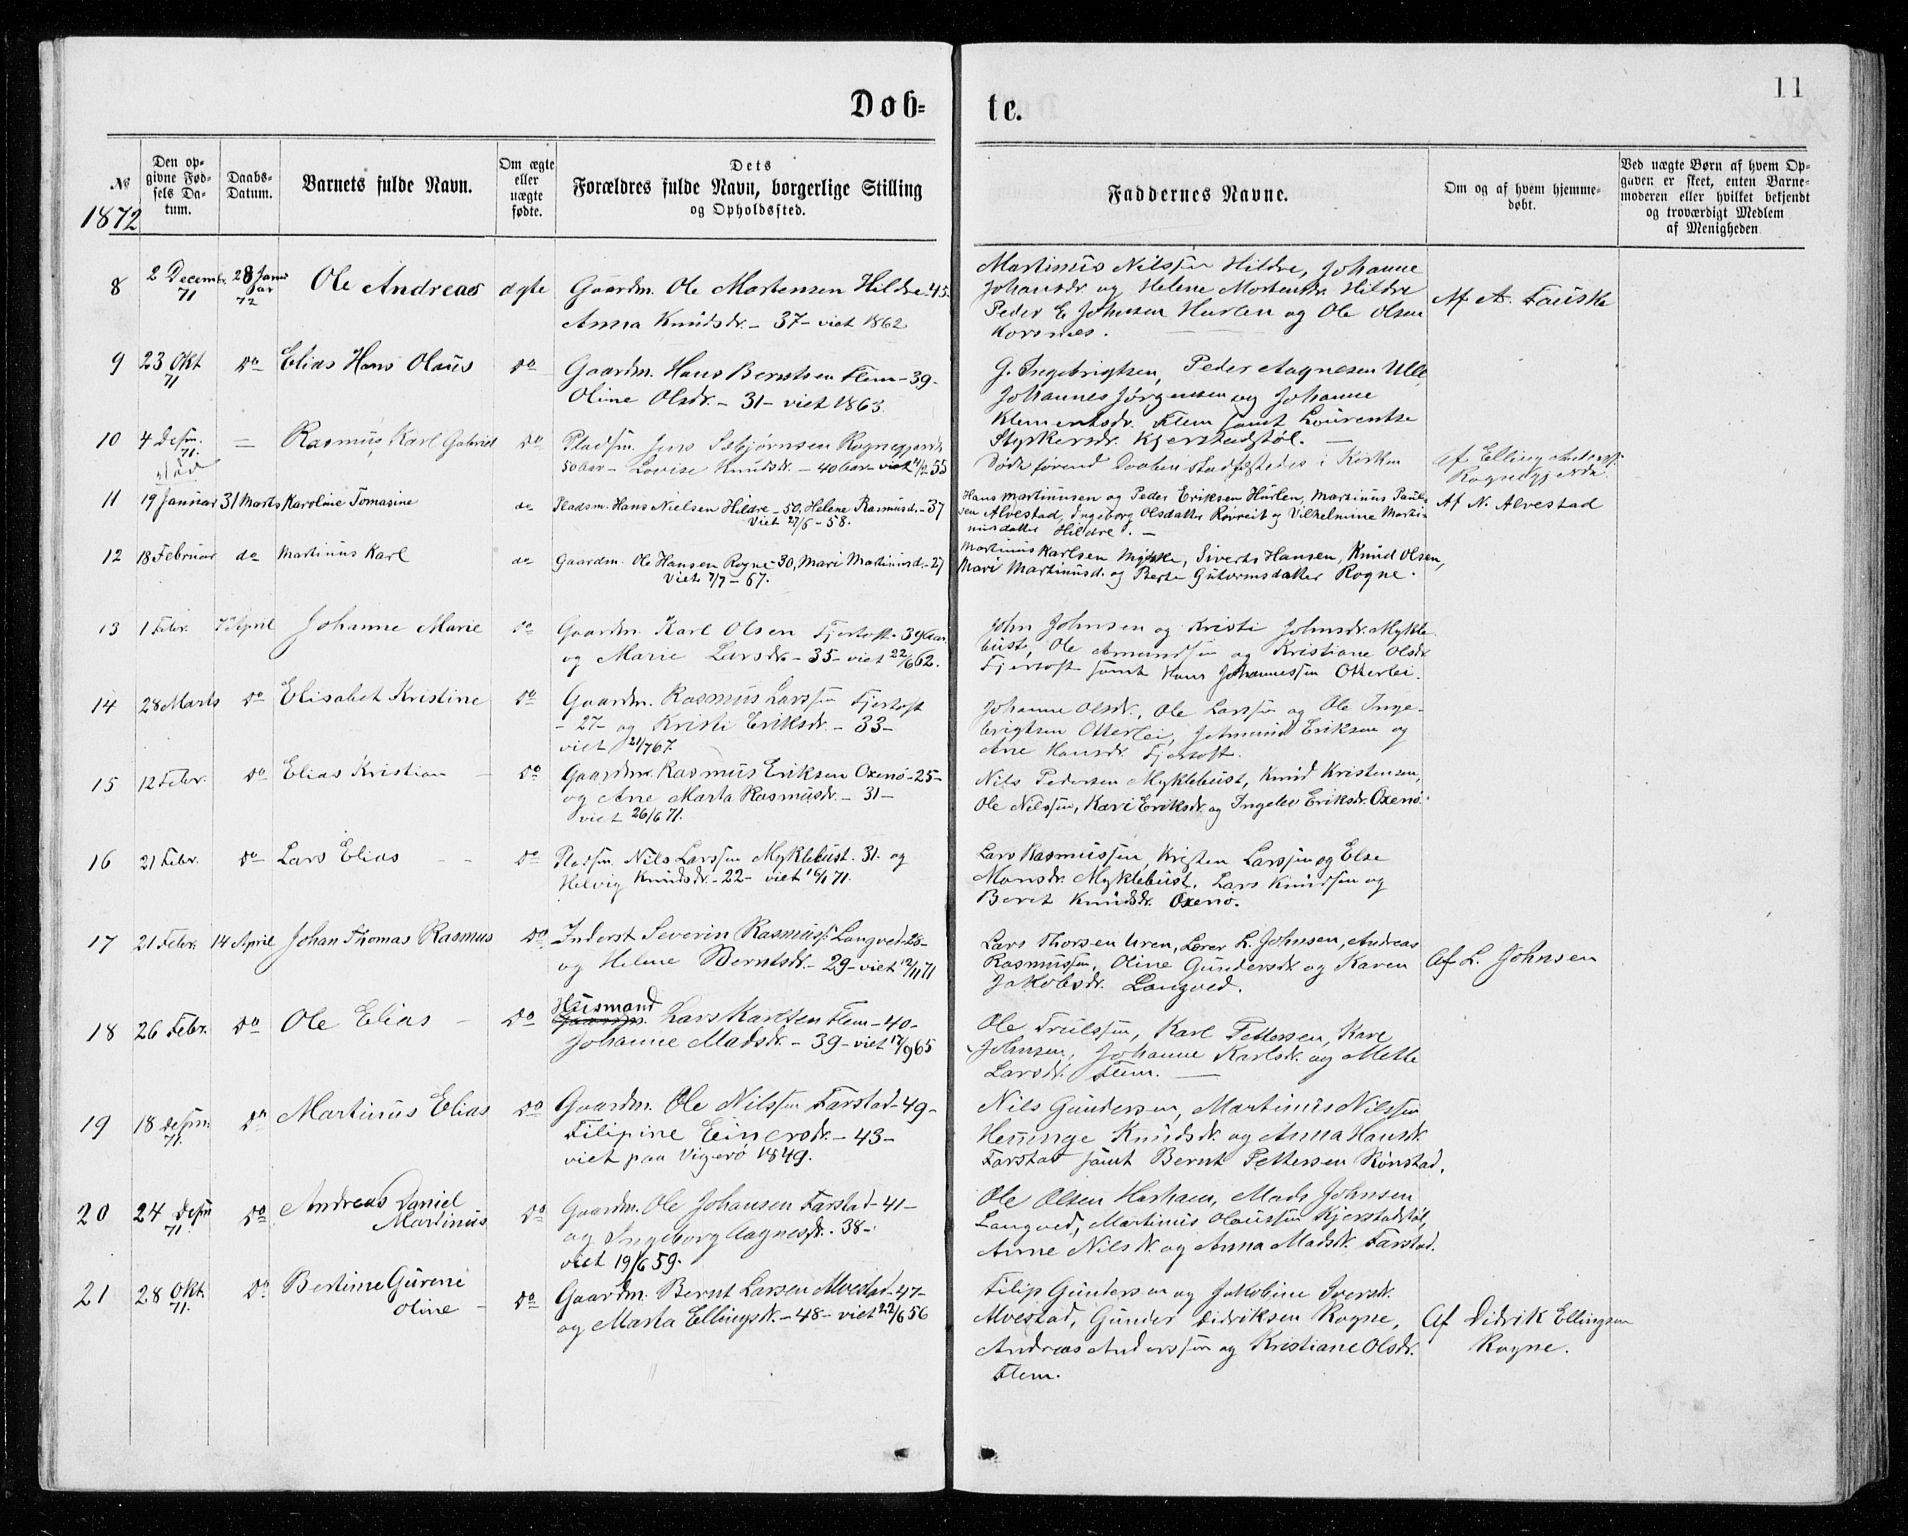 11
Døb-
te.
№
Den op-
givne Fød-
sels Da-
tum.
Daabs-
Datum.
Barnets fulde Navn.
Om ægte
eller
uægte
fødte.
Dets
Forældres fulde Navn, borgerlige Stilling
og Opholdssted.
Faddernes Navne.
Om og af hvem hjemme-
døbt.
Ved uægte Børn af hvem Op-
gaven er skeet, enten Barne-
moderen eller hvilket bekjendt
og troværdigt Medlem
af Menigheden
1872
8 2 Decembr. 71 28 Janu ar 72 Ole Andreas ægte Gaardm. Ole Mortensen Hildre - 45 -
Anna Knudsdr. - 37 - viet 1862
Martinus Nilssen Hildre, Johanne
Johansdr og Helene Mortensdr. Hildre
Peder E Johnsen Hurlen og Ole Olsen
Korsnes.
Af A. Fauske
9 23 Okt 71 Do Elias Hans Olaus Do Gaardm. Hans Berntsen Flem - 39 -
Oline Olsdr. - 31 - viet 1863.
G. Ingebrigtsen, Peder Aagnesen Ulle
Johannes Jørgensen og Johanne
Klementsdr. Flem samt Lourentse
Styrkersdr. Kjerstadstøl. -
10 4 Desm. 71. død = Rasmus Karl Gabriel Do Pladsm. Jens Esbjørnsen Rognegjerde
50 aar - Lovise Knudsdr. - 40 aar - viet 55
Døde førend Daaben stadfæstedes i Kirken
Af Elling Anderss.
Rognegjerde.
11 19 Januar 31 Marts Karoline Tomasine do Pladsm. Hans Nielsen Hildre - 50, Helene Rasmusd. - 37
Viet 27/6 - 58.
Hans Martinussen og Peder Eriksen Hurlen, Martinus Paul-
sen Alvestad, Ingeborg Olsdatter Røvreit og Vilhelmine Marti-
nusdatter Hildre. -
Af N. Alvestad
12 18 Februar do Martinus Karl do Gaardm. Ole Hansen Rogne - 30, Mari Martinusd. - 27
Viet 7/7 - 67.
Martinus Karlsen Myhle, Siverts Hansen, Knud Olsen,
Mari Martinusd. og Berte Gutormsdatter Rogne.
13 1 Febr. 7 April Johanne Marie Do Gaardm. Karl Olsen Fjørtoft - 39 aar
og Marie Larsdr. - 35 - viet 22/6 62.
John Johnsen og Kristi Johnsdr. Mykle-
bust, Ole Amundsen og Kristiane Olsdr.
Fjørtoft samt Hans Johannessen Otterlei.
14 28 Marts Do Elisabet Kristine Do Gaardm. Rasmus Larssen Fjørtoft
- 27 - og Kristi Eriksdr. - 33 -
viet 21/7 67.
Johanne Olsdr. Ole Larssen og Ole Inge-
brigtsen Otterlei, Johannes Eriksen og
Ane Hansdr. Fjørtoft.
15 12 Febr. Do Elias Kristian - Do Gaardm. Rasmus Eriksen Oxenø - 25 -
og Ane Marta Rasmusdr. - 31 -
viet 26/6 71.
Nils Pedersen Myklebust, Knud Kristensen,
Ole Nilssen, Kari Eriksdr. og Ingelev Eriksdr. Oxenø.
16 21 Febr. Do Lars Elias - - Do Pladsm. Nils Larssen Myklebust - 31 - og
Helvig Knudsdr. - 22 - viet 16/1 71.
Lars Rasmussen, Kristen Larssen og Else
Monsdr. Myklebust, Lars Knudsen og
Beret Knudsdr. Oxenø.
17 21 Febr. 14 April Johan Thomas Rasmus Do Inderst Severin Rasmuss. Langved - 26 -
og Helene Berntsdr. - 29 - viet 12/11 71
Lars Thorsen Uren, Lærer L. Johnsen, Andreas
Rasmussen, Oline Gundersdr. og Karen
Jakobsdr. Langved.
Af L. Johnsen
18 26 Febr. Do Ole Elias - Do Husmand
Gaardm. Lars Karlsen Flem - 40 -
Johanne Madsdr. - 39 - viet 17/9 65
Ole Trulssen, Karl Pettersen, Karl
Johnsen, Johanne Karlsdr. og Mette
Larsdr. Flem. -
19 18 Desm. 71. Do Martinus Elias Do Gaardm. Ole Nilssen Farstad - 49 -
Filipine Einersdr. - 43 -
viet paa Vigerø 1849.
Nils Gundersen, Martinus Nilssen
Henninge Knudsdr. og Anna Hansdr.
Farstad samt Bernt Pettersen Rønstad.
20 24 Desm 71. Do Andreas Daniel
Martinus Do Gaardm. Ole Johansen Farstad - 41 -
og Ingeborg Aagnesdr. - 38 -
viet 19/6 59.
Ole Olsen Harham, Mads Johnsen
Langved, Martinus Olaussen Kjerstadstøl,
Anne Nilsdr. og Anna Madsdr. Farstad.
21 28 Okt. 71. Do Bertine Gurene
Oline - Do Gaardm. Bernt Larsen Alvestad - 47 -
og Marta Ellingsdr. - 48 - viet 22/6 56
Filip Gundersen og Jakobine Iversdr.
Alvestad, Gunder Didriksen Rogne,
Andreas Anderssen og Kristiane Olsdr.
Flem.
Af Didrik Ellingsen
Rogne.